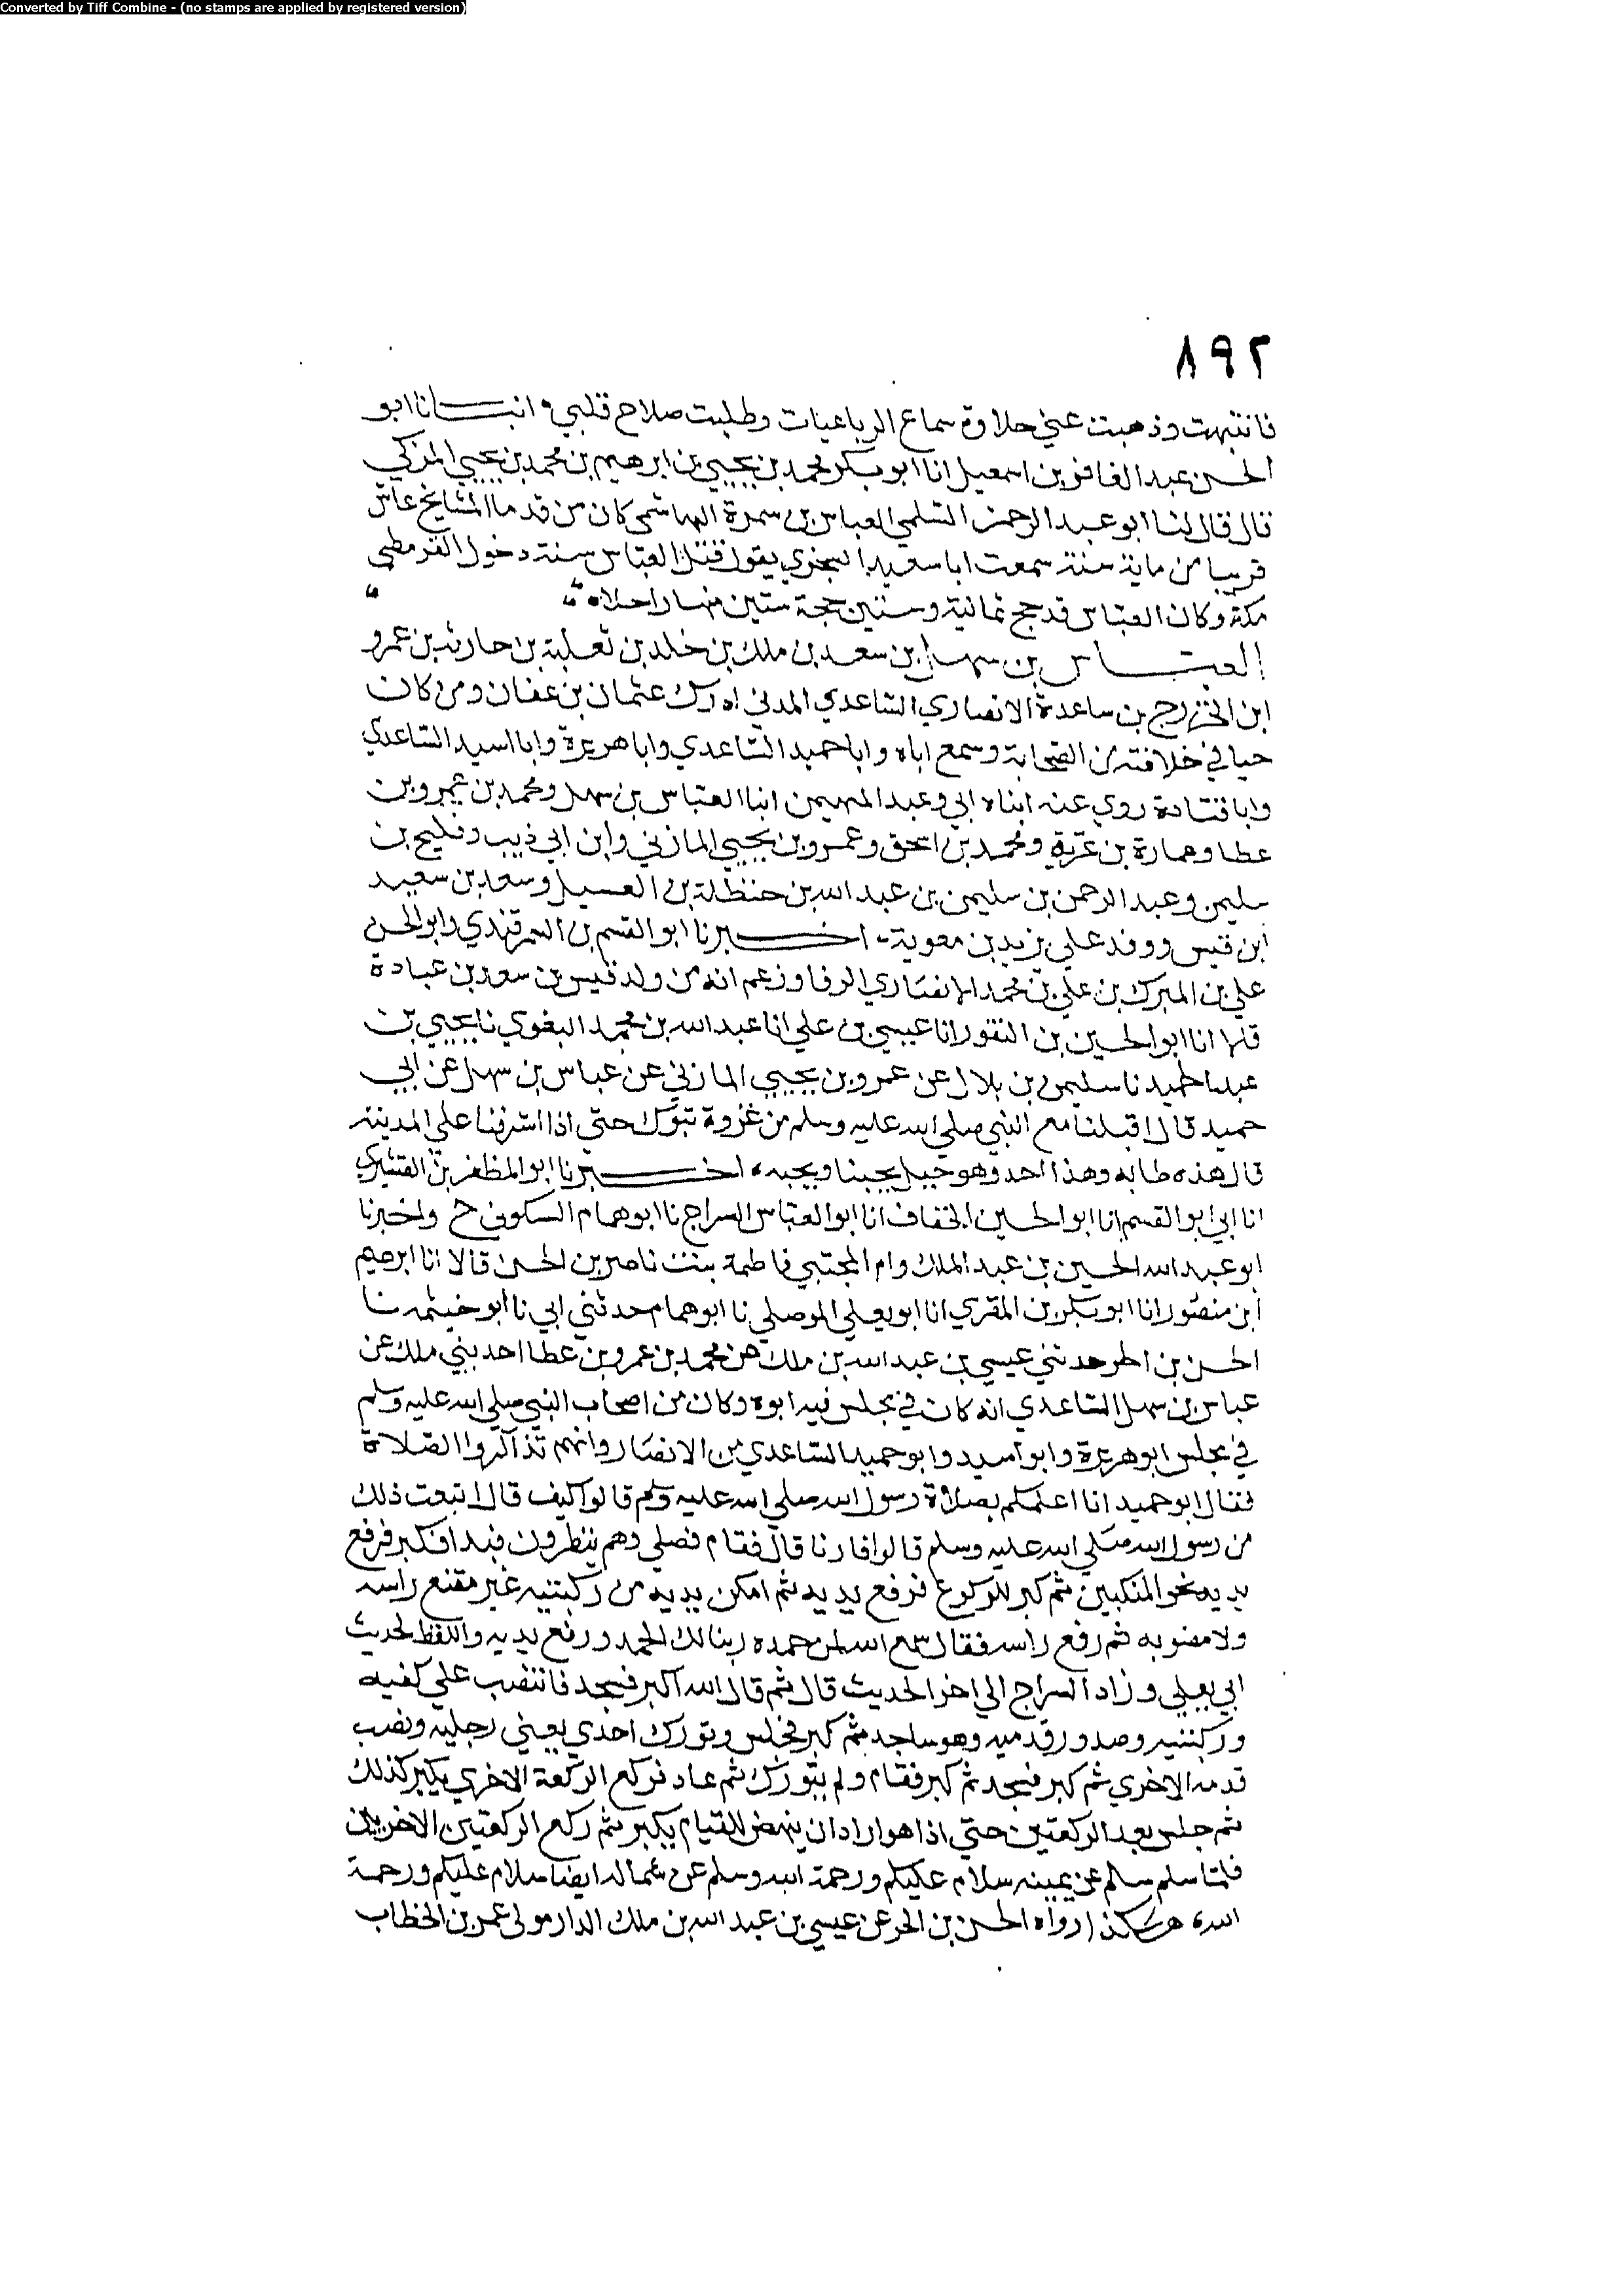 Converted by Tiff Combine - (no stamps are applied by registered version)
٨٩٢
فانتبهت وذهبت عني حلاوة سماع الرباعيات وطلبت صلاح قلبي، انبـــانا ابو
الحسن عبد الغافر بن اسمعيل انا ابو بكر محمد بن يحيي بن ابرهيم بن محمد بن يحيي المزكي
قال قال لنا ابو عبد الرحمن السلمي العباس بن سمرة الهاشمي كان من قدما المشايخ عاش
قريبا من ماية سنة سمعت ابا سعيد السجزي يقول قتل العباس سنة دخول القرمطي
مكة وكان العباس قد حج ثمانية وستين حجة ستين منها راحلاه
العبـــاس بن سهل بن سعد بن ملك بن خلد بن ثعلبة بن حارثه بن عمرو
ابن الخزرج بن ساعدة الانصاري الساعدي المدني ادرك عثمان بن عفان ومن كان
حيا في خلافته من الصحابة وسمع اباه وابا حميد الساعدي وابا هريرة وابا اسيد الساعدي
وابا قتادة روي عنه ابناه ابي وعبد المهيمن ابنا العباس بن سهل ومحمد بن عمرو بن
عطا وعمارة بن غزية ومحمد بن اسحق وعمرو بن يحيي المازني وابن ابي ذيب وفليح بن
سليمن وعبد الرحمن بن سليمن بن عبد الله بن حنظلة بن الغسيل وسعد بن سعيد
ابن قيس ووفد علي يزيد بن معوية، اخـــبرنا ابو القسم بن السمرقندي وابو الحسن
علي بن المبرك بن علي بن محمد الانصاري الرفا وزعم انه من ولد قيس بن سعد بن عبادة
قالا انا ابو الحسين بن النقور انا عيسي بن علي انا عبد الله بن محمد البغوي نا يحيي بن
عبد الحميد نا سليمن بن بلال عن عمرو بن يحيي المازني عن عباس بن سهل عن ابي
حميد قال اقبلنا مع النبي صلي الله عليه وسلم من غزوة تبوك حتي اذا اشرفنا علي المدينة
قال هذه طابه وهذا احد وهو جبل يحبنا ويحبه، اخـــبرنا ابو المظفر بن القشيري
انا ابي ابو القسم انا ابو الحسين الخفاف انا ابو العباس السراج نا ابو همام السكوني ح واخبرنا
ابو عبد الله الحسين بن عبد الملك وام المجتبي فاطمة بنت ناصر بن الحسن قالا انا ابرهيم
ابن منصور انا ابو بكر بن المقري انا ابو يعلي الموصلي نا ابو همام حدثني ابي نا ابو خيثمه نا
الحسن بن الحر حدثني عيسي بن عبد الله بن ملك عن محمد بن عمرو بن عطا احد بني ملك عن
عباس بن سهل الساعدي انه كان في مجلس فيه ابوه وكان من اصحاب النبي صلي الله عليه وسلم
في مجلس ابو هريرة وابو اسيد وابو حميد الساعدي من الانصار وانهم تذاكروا الصلاة
فقال ابو حميد انا اعلمكم بصلاة رسول الله صلي الله عليه وسلم قالوا كيف قال اتبعت ذلك
من رسول الله صلي الله عليه وسلم قالوا فارنا قال فقام فصلي وهم ينظرون فبدا فكبر فرفع
يديه نحو المنكبين ثم كبر للركوع فرفع يديه ثم امكن يديه من ركبتيه غير مقنع راسه
ولا مصوبه ثم رفع راسه فقال سمع الله لمن حمده ربنا لك الحمد ورفع يديه واللفظ لحديث
ابي يعلي وزاد السراج الي اخر الحديث قال ثم قال الله اكبر فسجد فانتصب علي كفيه
وركبتيه وصدور قدميه وهو ساجد ثم كبر فجلس وتورك احدي يعني رجليه ونصب
قدمه الاخري ثم كبر فسجد ثم كبر فقام ولم يتورك ثم عاد فركع الركعة الاخري يكبر كذلك
ثم جلس بعد الركعتين حتي اذا هو اراد ان ينهض للقيام يكبر ثم ركع الركعتين الاخريين
فلما سلم سلم عن يمينه سلام عليكم ورحمة الله وسلم عن شماله ايضا سلام عليكم ورحمة
الله، هـــكذا رواه الحسن بن الحر عن عيسي بن عبد الله بن ملك الدار مولي عمر بن الخطاب